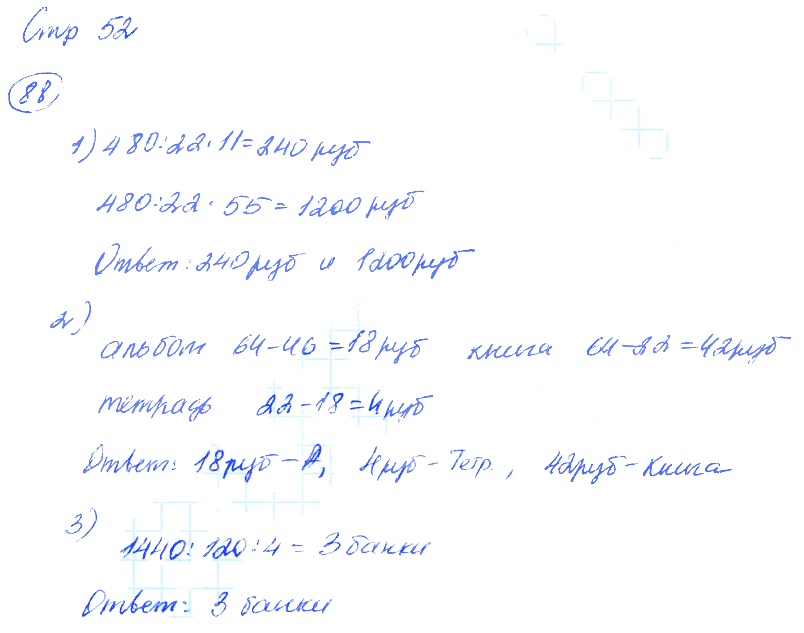 Стр 52
88
1) 480:22·11=240 руб
480:22·55=1200 руб
Ответ: 240 руб и 1200 руб
2)
альбом 64-46=18 руб книга 64-22=42 руб
тетрадь 22-18=4 руб
Ответ: 18 руб - А, 4 руб - Тетр., 42 руб - Книга
3)
1440:120:4=3 банки
Ответ: 3 банки